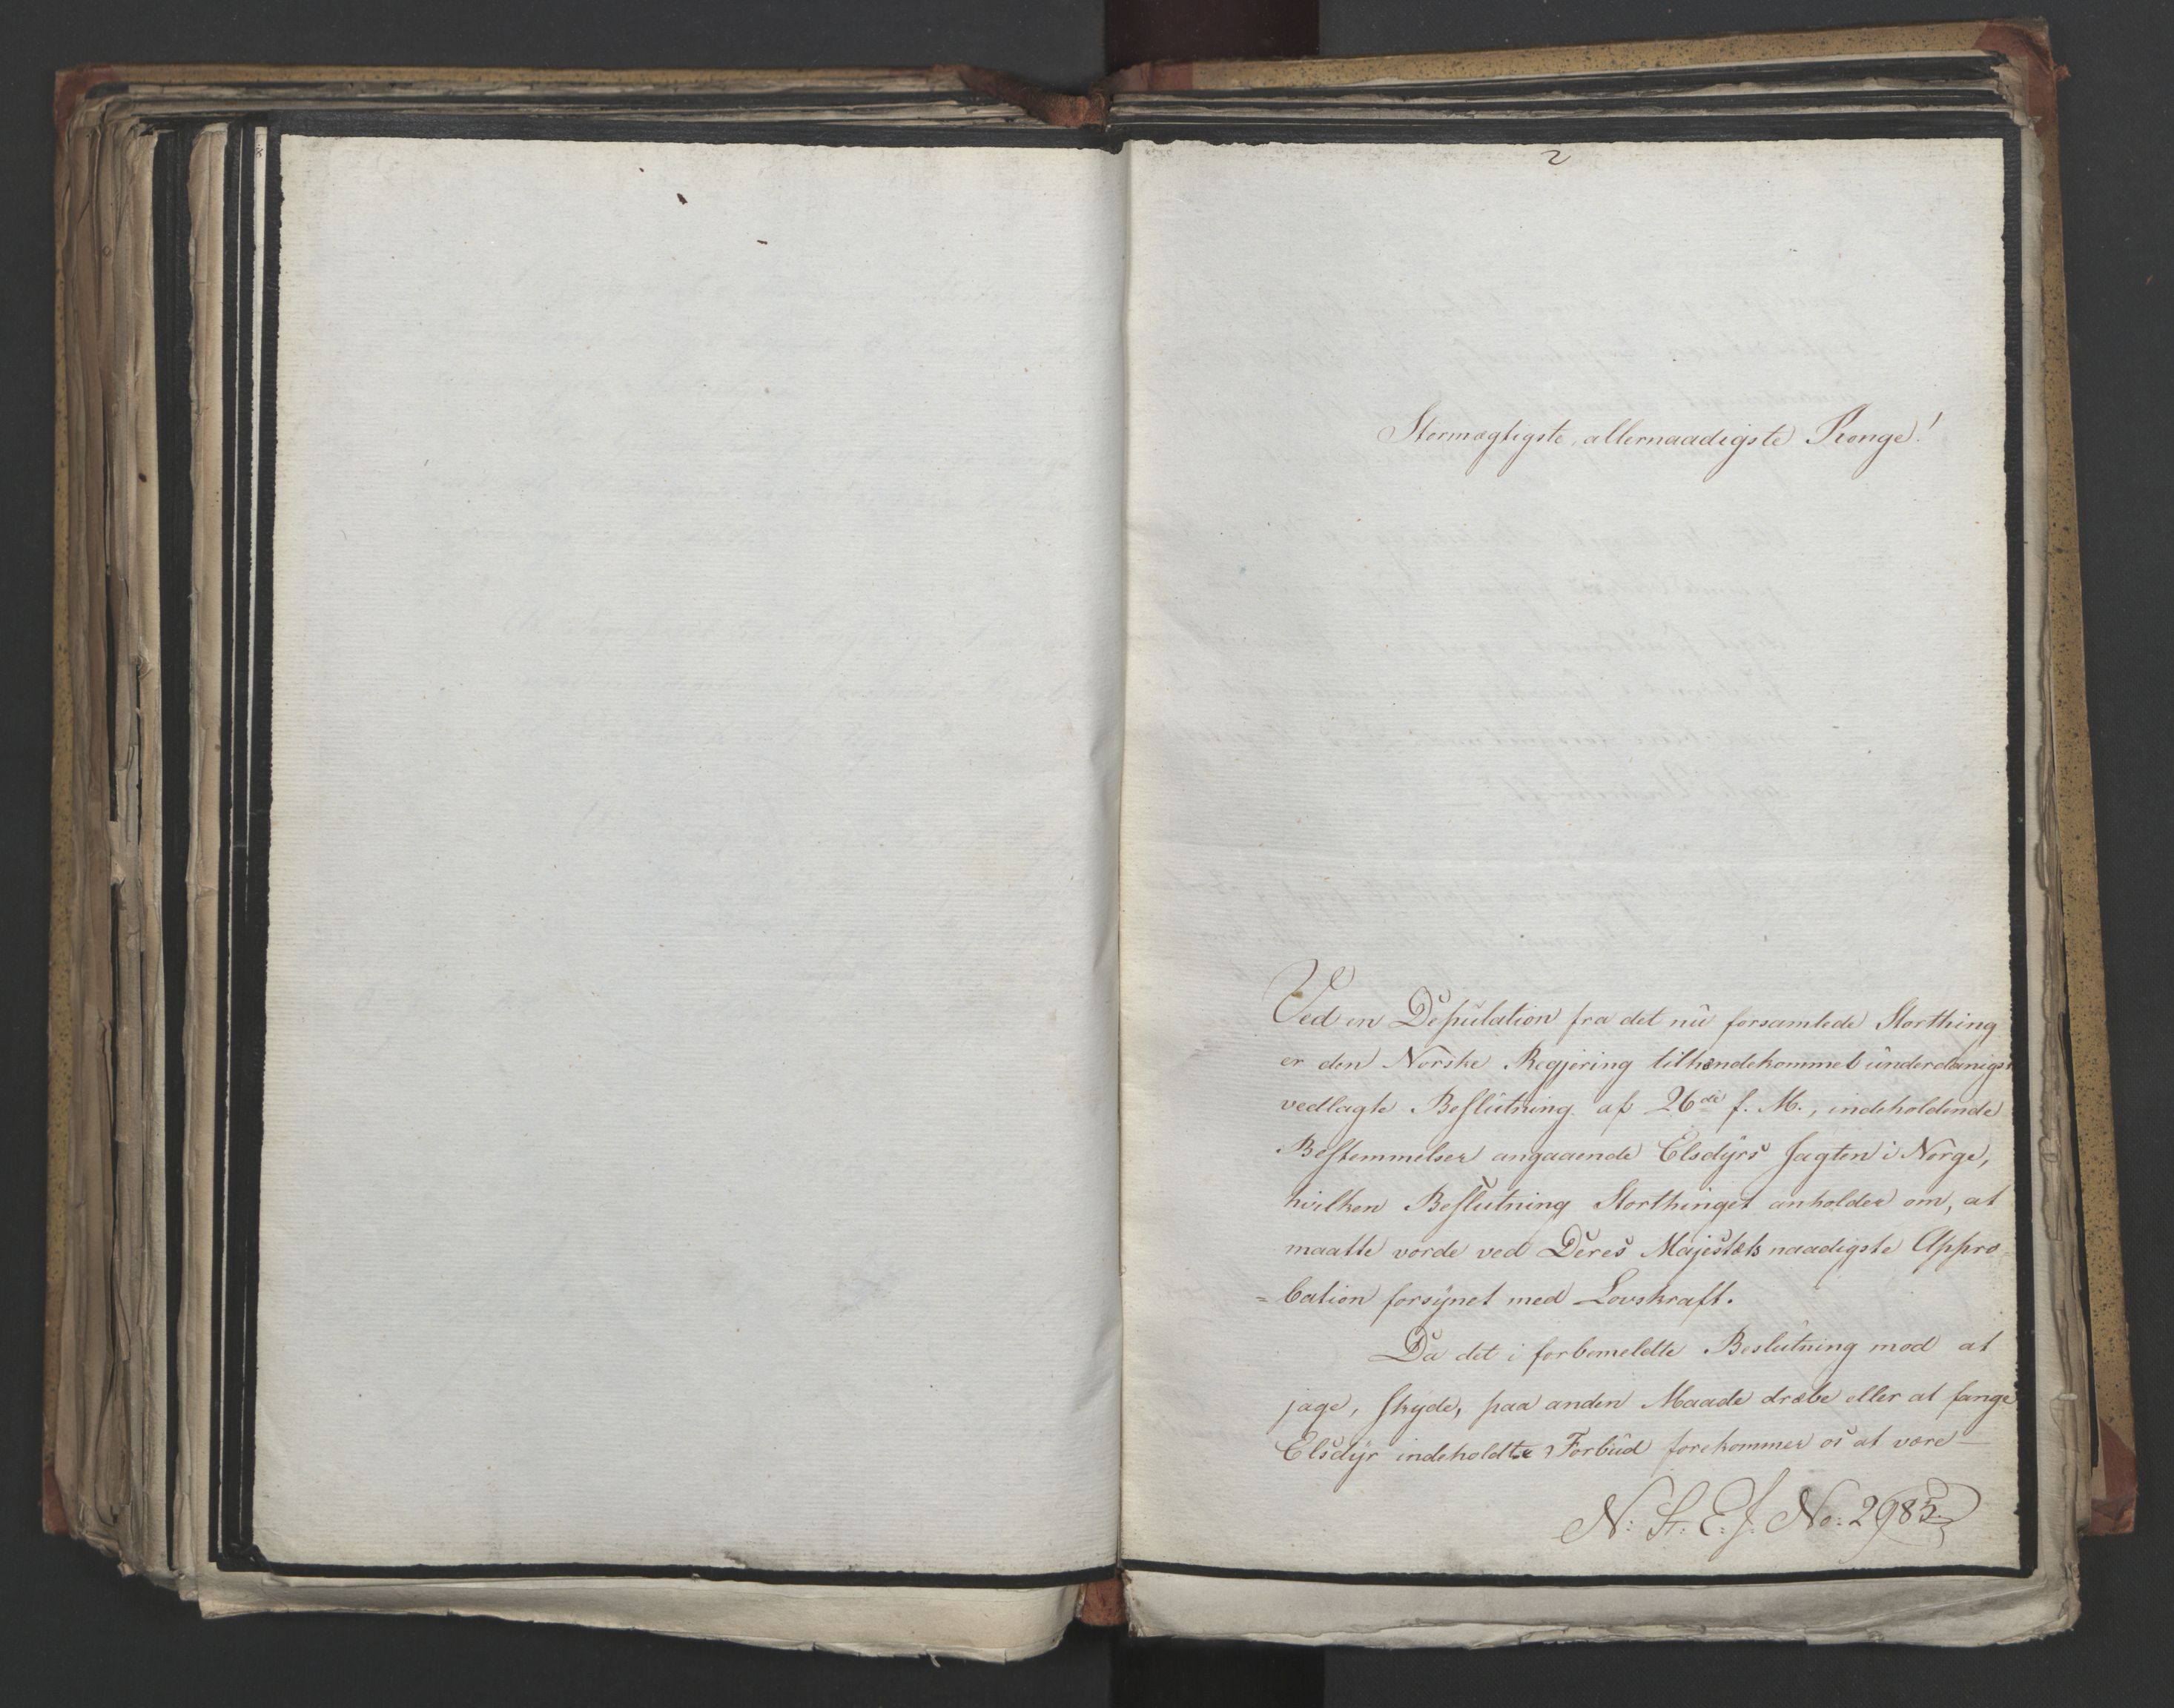 2
Stormægtigste, allernaadigste Konge!
Ved en Deputation fra det nu forsamlede Storthing
er den Norske Regjering tilhændekommet underdanigst
vedlagte Beslutning af 26de f. M., indeholdende
Bestemmelser angaaende Elsdyrs Jagten i Norge,
hvilken Beslutning Storthinget anholder om, at
maatte vorde ved Deres Majestæts naadigste Appro
= bation forsynet med Lovskraft.
Da det i forbemeldte Beslutning mod at
jage, skyde, paa anden Maade dræbe eller at fange
Elsdyr indeholdte Forbud forekommer os at være
N: St. E. J. No: 2983